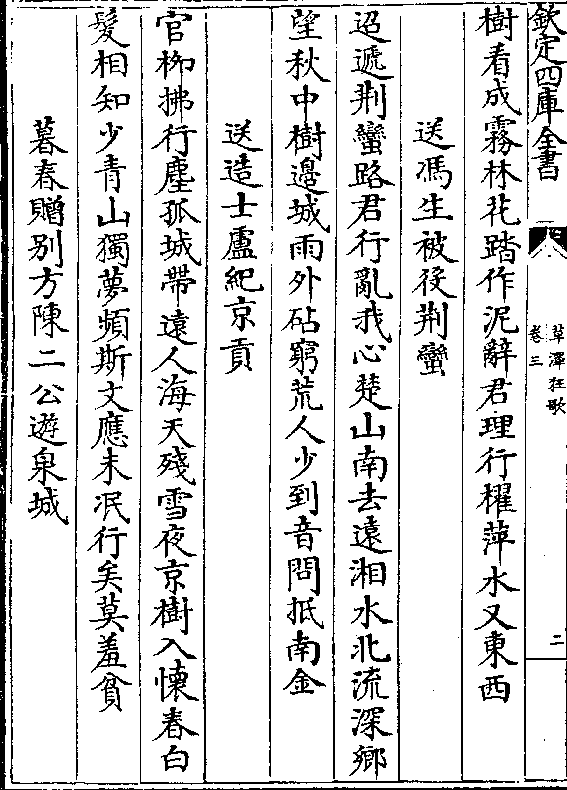 欽定四庫全書
草澤狂歌
卷三
二
樹看成霧林花踏作泥辭君理行櫂萍水又東西
送馮生被役荆蠻
迢遞荆蠻路君行亂我心楚山南去遠湘水北流深鄉
望秋中樹邊城雨外砧窮荒人少到音問抵南金
送造士盧紀京貢
官柳拂行塵孤城帶遠人海天殘雪夜京樹入懐春白
髮相知少青山獨夢頻斯文應未泯行矣莫羞貧
暮春贈别方陳二公遊泉城